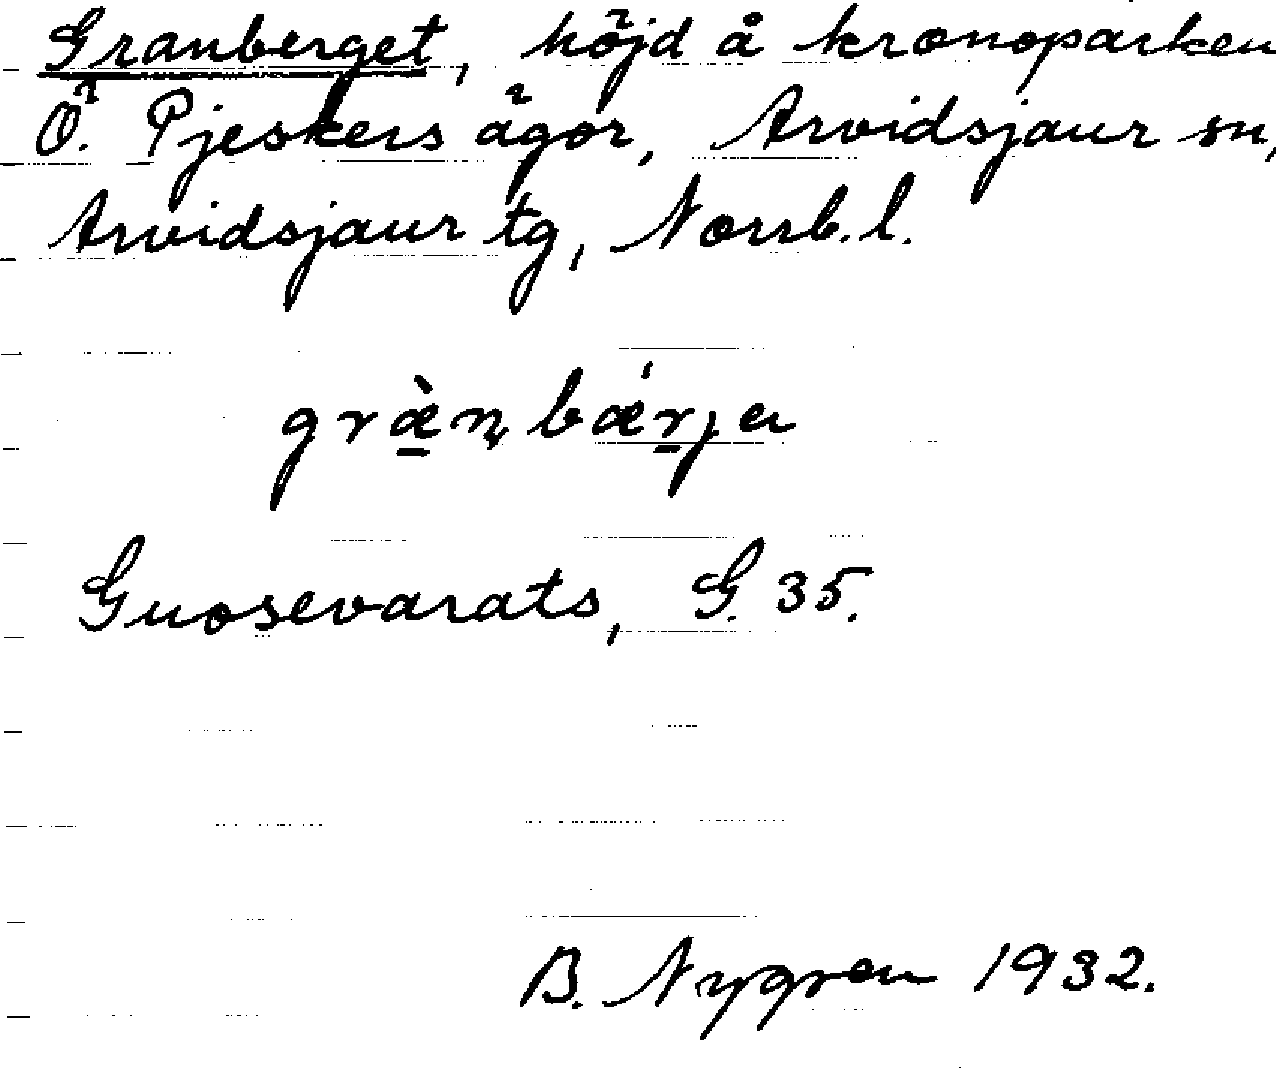 Granberget, höjd å kronoparken
Ö. Pjeskers ägor, Arvidsjaur sn,
Arvidsjaur tg, Norrb. l.
græ̀n bǽrja
Guosevarats, G. 35.
B. Nygren 1932.